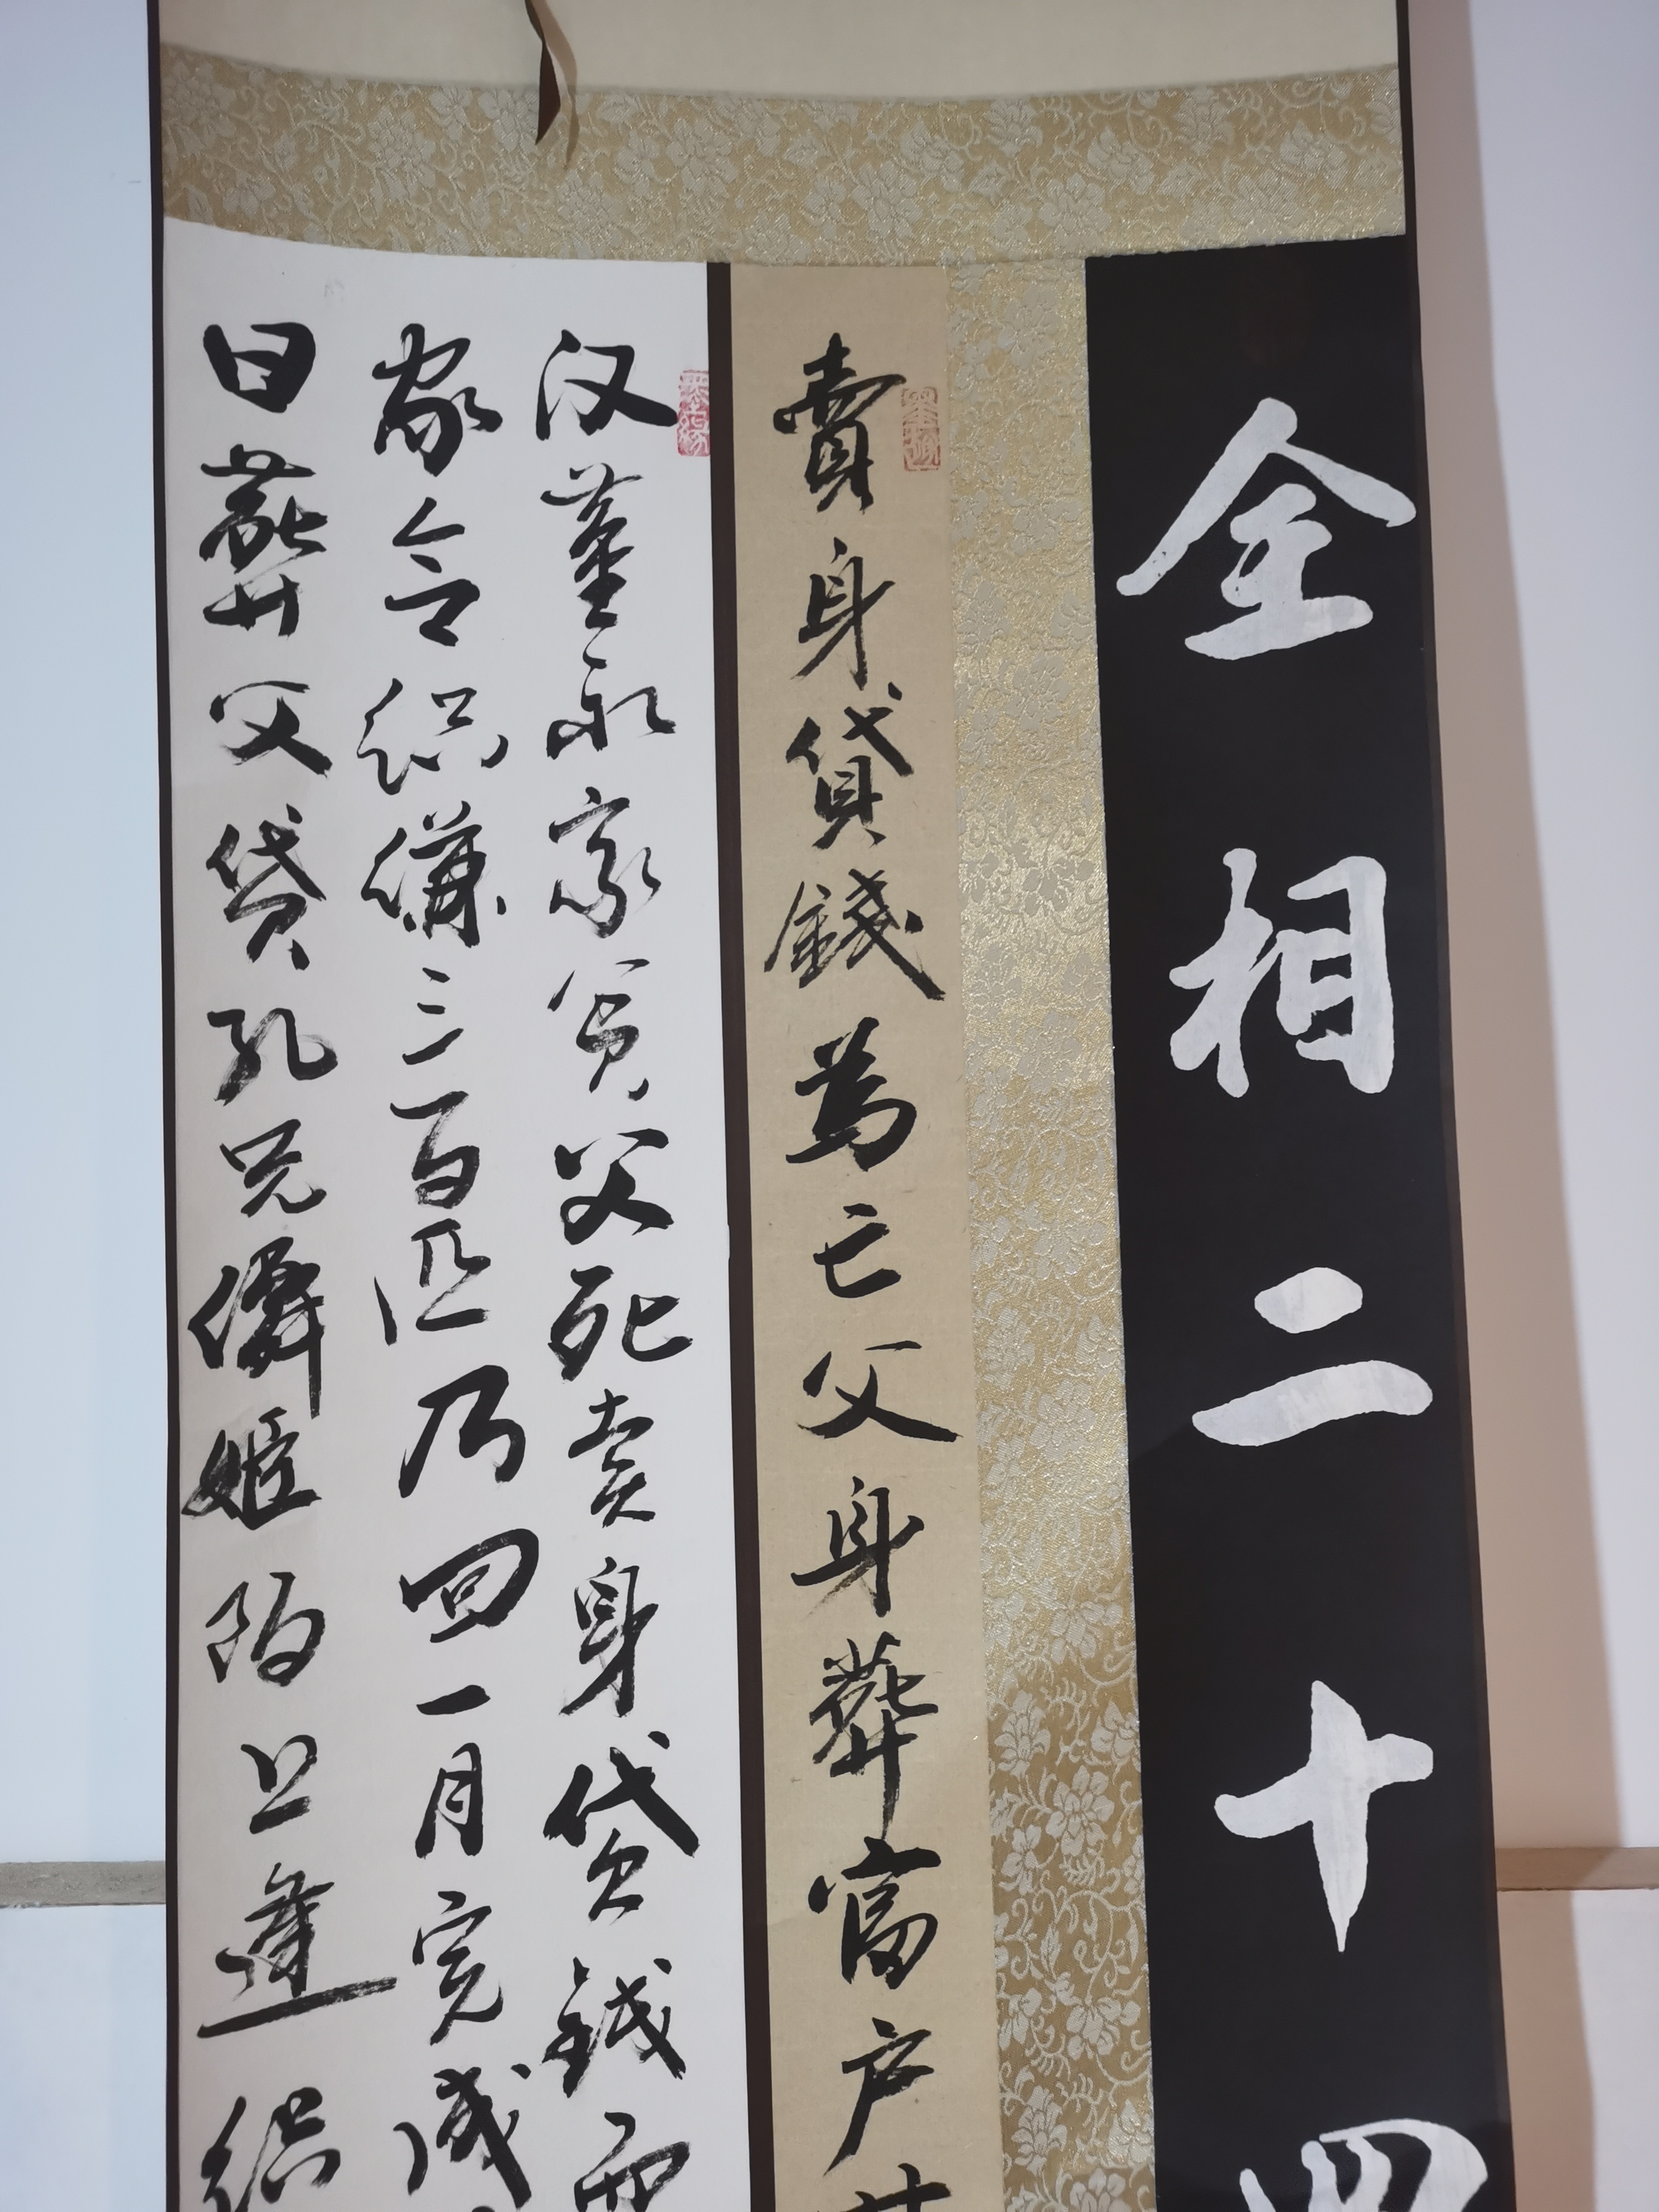 全相二十四
賣身貸錢為亡父身葬富户
汉董永家贫父死卖身贷钱而
家令织缣三百匹乃回一月完成
曰葬父贷孔兄仙姬陌上逢织